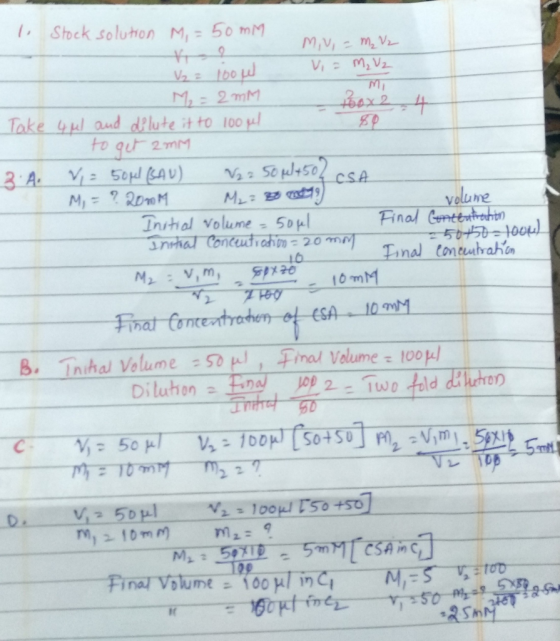 1. Stock solution M₁ = 50 mM
V₁ = ?
V₂ = 100 µl
M₂ = 2 mM
M₁V₁ = m₂V₂
V₁ = m₂V₂ / m₁
= 100 x 2 / 50 = 4
Take 4µl and dilute it to 100µl
to get 2mM
3. A. V₁ = 50µl (SAV) V₂ = 50µl+50 } CSA
M₁ = ? 20mM M₂ = ?
Initial volume = 50µl
Initial Concentration = 20 mM
Final Concentration volume
= 50+50 = 100µl
Final concentration
M₂ = V₁m₁ / V₂ = 50x20 / 100 = 10mM
Final Concentration of CSA = 10mM
B. Initial Volume = 50 µl, Final Volume = 100µl
Dilution = Final / Initial 100 / 50 2 = Two fold dilution
C. V₁ = 50µl V₂ = 100µl [50+50] M₂ = V₁m₁ / V₂ = 50x10 / 100 = 5mM
M₁ = 10mM m₂ = ?
D. V₁ = 50µl V₂ = 100µl [50+50]
m₁ = 10mM m₂ = ?
M₂ = 50x10 / 100 = 5mM [CSA in C₁]
Final Volume = 100µl in C₁ M₁ = 5 V₂ = 100
" = 100µl in C₂ V₁ = 50 m₂ = ? 5x50 / 100 = 2.5m
= 2.5mM